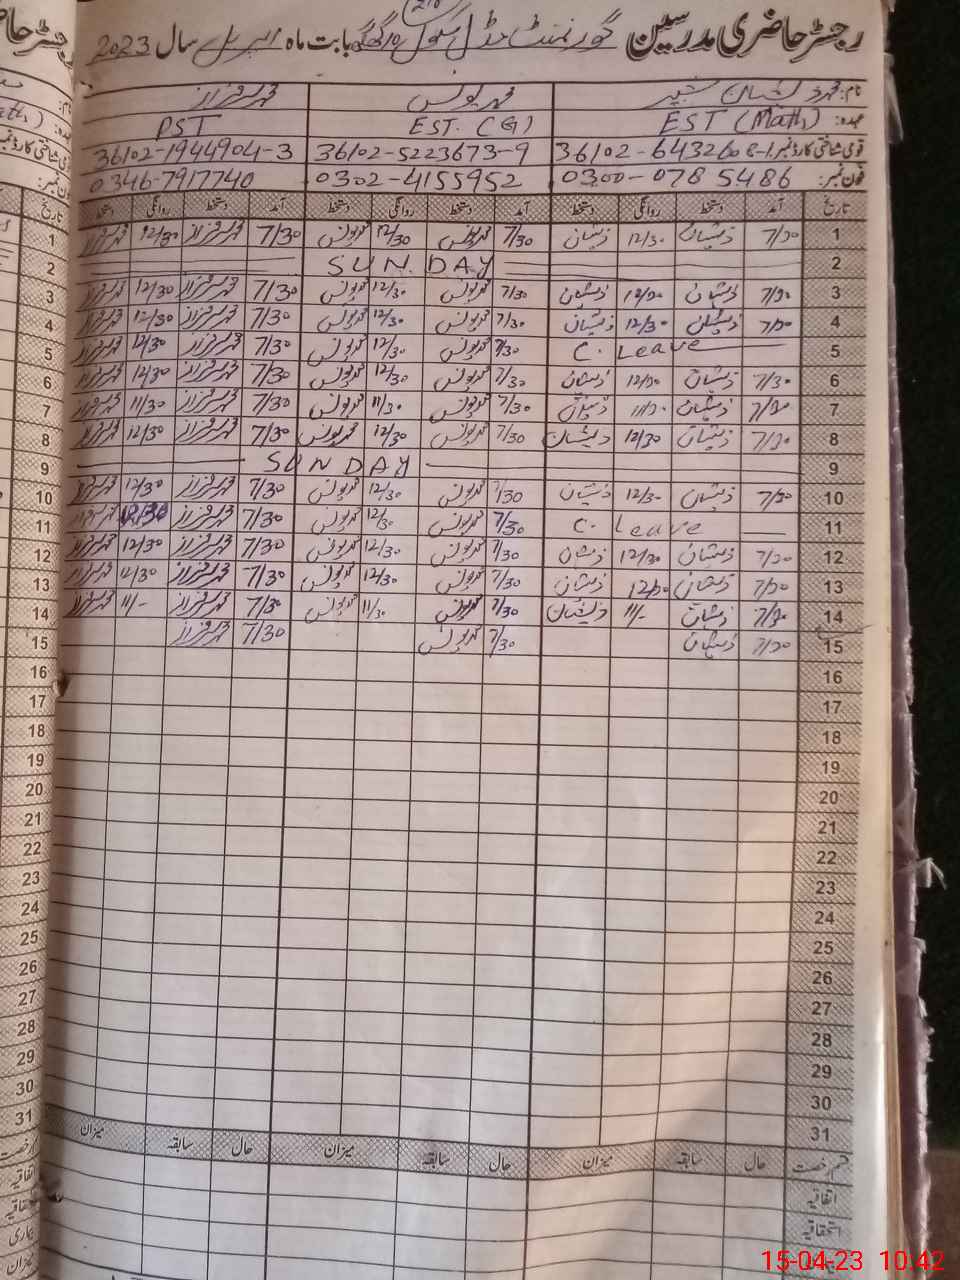 رجسٹر حاضری مدرسین گورنمنٹ مڈل سکول بابت ماہ اپریل سال 2023
نام: محمد ذیشان شبیر محمد یونس محمد سرفراز
عہدہ: EST (Math) EST. (G) PST
قومی شناختی کارڈ نمبر: 36102-6432608-1 36102-5223673-9 36102-1944904-3
فون نمبر: 0300-0785486 0302-4155952 0346-7917740
تاریخ آمد دستخط روانگی دستخط آمد دستخط روانگی دستخط آمد دستخط روانگی دستخط
1 7/30 ذیشان 12/30 ذیشان 7/30 محمد یونس 12/30 محمد یونس 7/30 محمد سرفراز 12/30 محمد سرفراز
2 SUNDAY
3 7/30 ذیشان 12/30 ذیشان 7/30 محمد یونس 12/30 محمد یونس 7/30 محمد سرفراز 12/30 محمد سرفراز
4 7/30 ذیشان 12/30 ذیشان 7/30 محمد یونس 12/30 محمد یونس 7/30 محمد سرفراز 12/30 محمد سرفراز
5 C. Leave 7/30 محمد یونس 12/30 محمد یونس 7/30 محمد سرفراز 12/30 محمد سرفراز
6 7/30 ذیشان 12/30 ذیشان 7/30 محمد یونس 12/30 محمد یونس 7/30 محمد سرفراز 12/30 محمد سرفراز
7 7/30 ذیشان 11/30 ذیشان 7/30 محمد یونس 11/30 محمد یونس 7/30 محمد سرفراز 11/30 محمد سرفراز
8 7/30 ذیشان 12/30 ذیشان 7/30 محمد یونس 12/30 محمد یونس 7/30 محمد سرفراز 12/30 محمد سرفراز
9 SUNDAY
10 7/30 ذیشان 12/30 ذیشان 7/30 محمد یونس 12/30 محمد یونس 7/30 محمد سرفراز 12/30 محمد سرفراز
11 C. Leave 7/30 محمد یونس 12/30 محمد یونس 7/30 محمد سرفراز 12/30 محمد سرفراز
12 7/30 ذیشان 12/30 ذیشان 7/30 محمد یونس 12/30 محمد یونس 7/30 محمد سرفراز 12/30 محمد سرفراز
13 7/30 ذیشان 12/30 ذیشان 7/30 محمد یونس 12/30 محمد یونس 7/30 محمد سرفراز 12/30 محمد سرفراز
14 7/30 ذیشان 11/- ذیشان 7/30 محمد یونس 11/30 محمد یونس 7/30 محمد سرفراز 11/- محمد سرفراز
15 7/30 ذیشان 7/30 محمد یونس 7/30 محمد سرفراز
16
17
18
19
20
21
22
23
24
25
26
27
28
29
30
31
قسم رخصت حال سابقہ میزان حال سابقہ میزان حال سابقہ میزان
اتفاقیہ
استحقاقیہ
بیماری
15-04-23 10:42